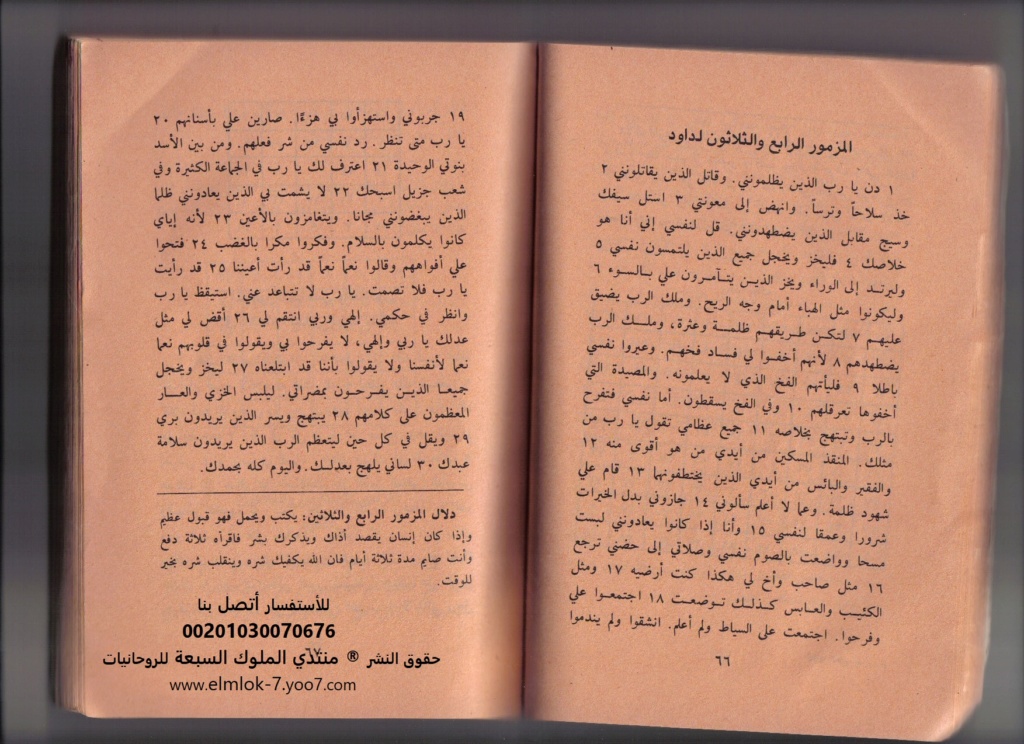 المزمور الرابع والثلاثون لداود
١ دن يا رب الذين يظلمونني. وقاتل الذين يقاتلونني ٢
خذ سلاحاً وترساً. وانهض إلى معونتي ٣ استل سيفك
وسيج مقابل الذين يضطهدونني. قل لنفسي إني أنا هو
خلاصك ٤ فليخز ويخجل جميع الذين يلتمسون نفسي ٥
وليرتد إلى الوراء ويخز الذين يتآمرون علي بالسوء ٦
وليكونوا مثل الهباء أمام وجه الريح. وملك الرب يضيق
عليهم ٧ لتكن طريقهم ظلمة وعثرة، وملك الرب
يضطهدهم ٨ لأنهم أخفوا لي فساد فخهم. وعيروا نفسي
باطلا ٩ فليأتهم الفخ الذي لا يعلمونه. والمصيدة التي
أخفوها تعرقلهم ١٠ وفي الفخ يسقطون. أما نفسي فتفرح
بالرب وتبتهج بخلاصه ١١ جميع عظامي تقول يا رب من
مثلك. المنقذ المسكين من أيدي من هو أقوى منه ١٢
والفقير والبائس من أيدي الذين يختطفونهما ١٣ قام علي
شهود ظلمة. وعما لا أعلم سألوني ١٤ جازوني بدل الخيرات
شرورا وعمقا لنفسي ١٥ وأنا إذا كانوا يعادونني لبست
مسحا وواضعت بالصوم نفسي وصلاتي إلى حضني ترجع
١٦ مثل صاحب وأخ لي هكذا كنت أرضيه ١٧ ومثل
الكئيب والعابس كذلك توضعت ١٨ اجتمعوا علي
وفرحوا. اجتمعت على السياط ولم أعلم. انشقوا ولم يندموا
٦٦
١٩ جربوني واستهزأوا بي هزءًا. صارين علي بأسنانهم ٢٠
يا رب متى تنظر. رد نفسي من شر فعلهم. ومن بين الأسد
بنوتي الوحيدة ٢١ اعترف لك يا رب في الجماعة الكثيرة وفي
شعب جزيل اسبحك ٢٢ لا يشمت بي الذين يعادونني ظلما
الذين يبغضونني مجانا. ويتغامزون بالأعين ٢٣ لأنه إياي
كانوا يكلمون بالسلام. وفكروا مكرا بالغضب ٢٤ فتحوا
علي أفواههم وقالوا نعماً نعماً قد رأت أعيننا ٢٥ قد رأيت
يا رب فلا تصمت. يا رب لا تتباعد عني. استيقظ يا رب
وانظر في حكمي. إلهي وربي انتقم لي ٢٦ أقض لي مثل
عدلك يا ربي وإلهي، لا يفرحوا بي ويقولوا في قلوبهم نعما
نعما لأنفسنا ولا يقولوا بأننا قد ابتلعناه ٢٧ ليخز ويخجل
جميعا الذين يفرحون بمضراتي. ليلبس الخزي والعار
المعظمون على كلامهم ٢٨ يبتهج ويسر الذين يريدون بري
٢٩ ويقل في كل حين ليتعظم الرب الذين يريدون سلامة
عبدك ٣٠ لساني يلهج بعدلك. واليوم كله بحمدك.
دلال المزمور الرابع والثلاثين: يكتب ويحمل فهو قبول عظيم
وإذا كان إنسان يقصد أذاك ويذكرك بشر فاقرأه ثلاثة دفع
وأنت صايم مدة ثلاثة أيام فان الله يكفيك شره وينقلب شره بخير
للوقت.
للأستفسار أتصل بنا
00201030070676
٦٧
حقوق النشر ® منتدي الملوك السبعة للروحانيات
www.elmlok-7.yoo7.com